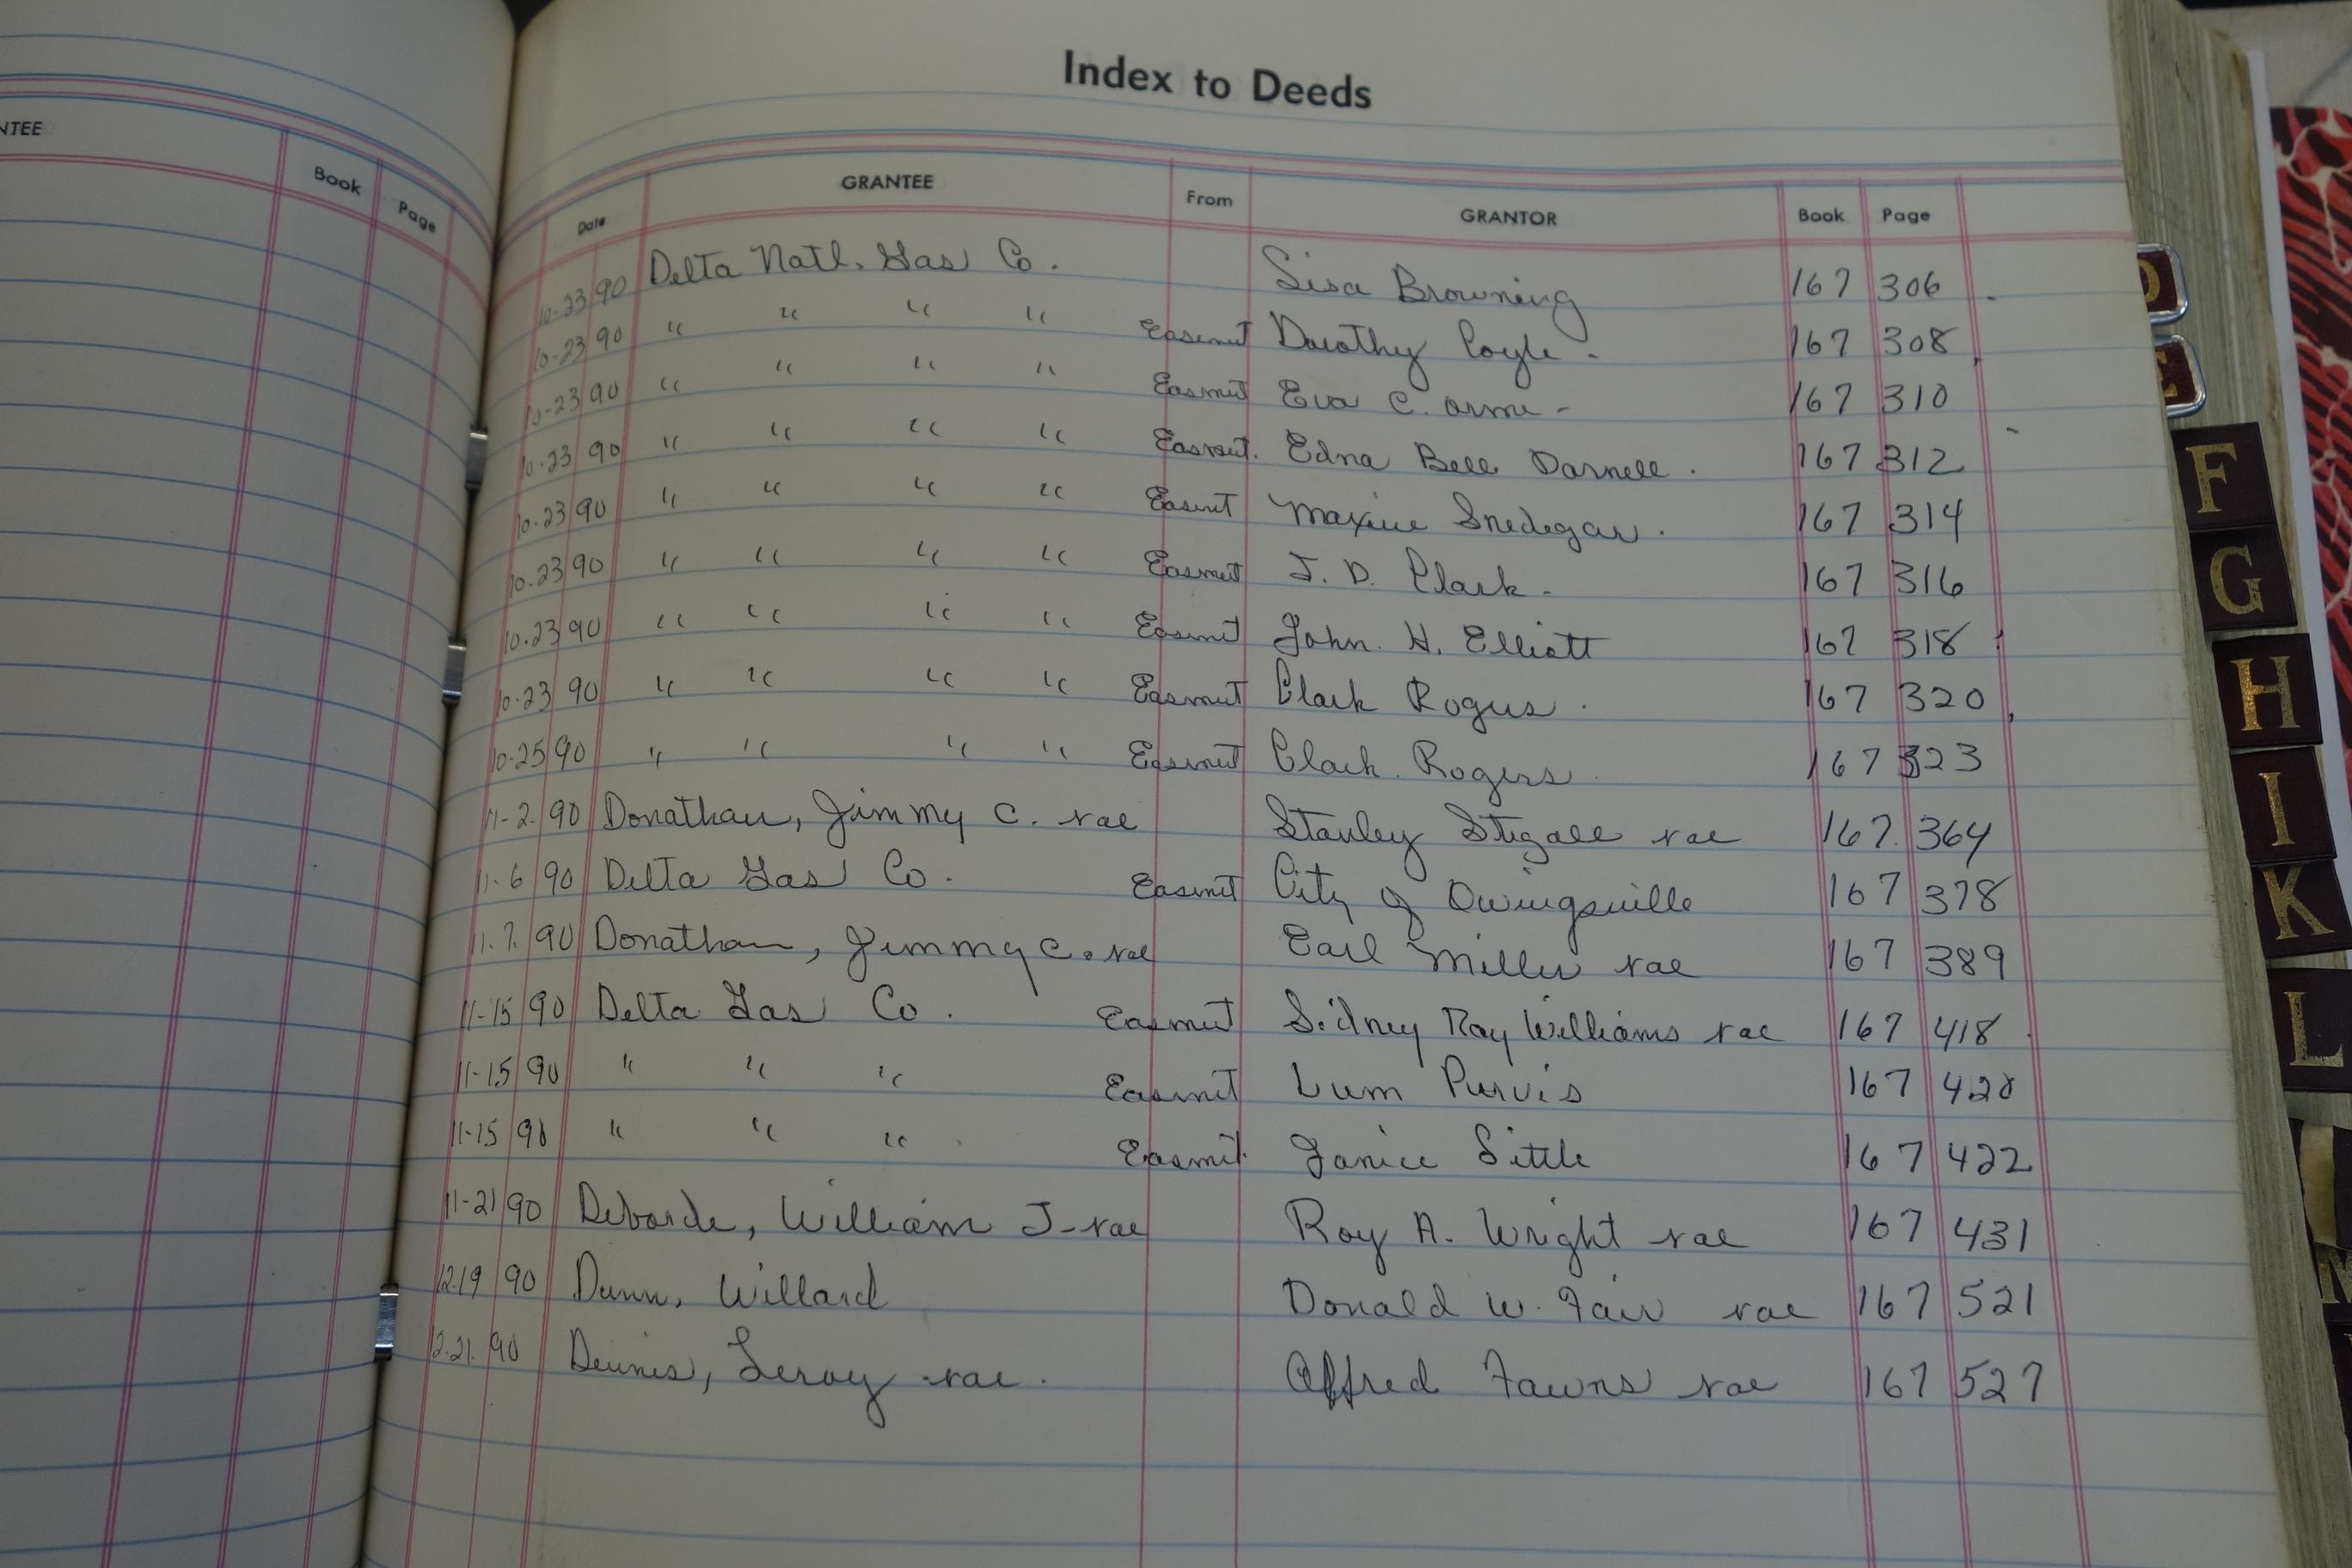 Index to Deeds
NTEE Book Page
Date GRANTEE From GRANTOR Book Page
10-23 90 Delta Natl. Gas Co. Lisa Browning 167 306
10-23 90 " " " " Easemnt Dorothy Coyle 167 308
10-23 90 " " " " Easmnt Eva C. orme 167 310
10-23 90 " " " " Easmnt. Edna Bell Darnell. 167 312
10-23 90 " " " " Easmnt Maxine Snedegar. 167 314
10-23 90 " " " " Easmnt J. D. Clark 167 316
10-23 90 " " " " Easmnt John H. Elliott 167 318
10-23 90 " " " " Easmnt Clark Rogers. 167 320
10-25 90 " " " " Easmnt Clark Rogers 167 323
11-2. 90 Donathan, Jimmy C. rae Stanley Stigall rae 167 364
11-6 90 Delta Gas Co. Easmnt City of Owingsville 167 378
11.7. 90 Donathan, Jimmy C. rae Earl Miller rae 167 389
11-15 90 Delta Gas Co. Easmnt Sidney Ray Williams rae 167 418
11-15 90 " " " Easmnt Lum Purvis 167 420
11-15 90 " " " Easmnt. Janice Little 167 422
11-21 90 Deborde, William J-rae Roy A. Wright rae 167 431
12.19 90 Dunn, Willard Donald W. Fair rae 167 521
12.21. 90 Dennis, Leroy rae. Alfred Fawns rae 167 527
D
E
F
G
H
I
K
L